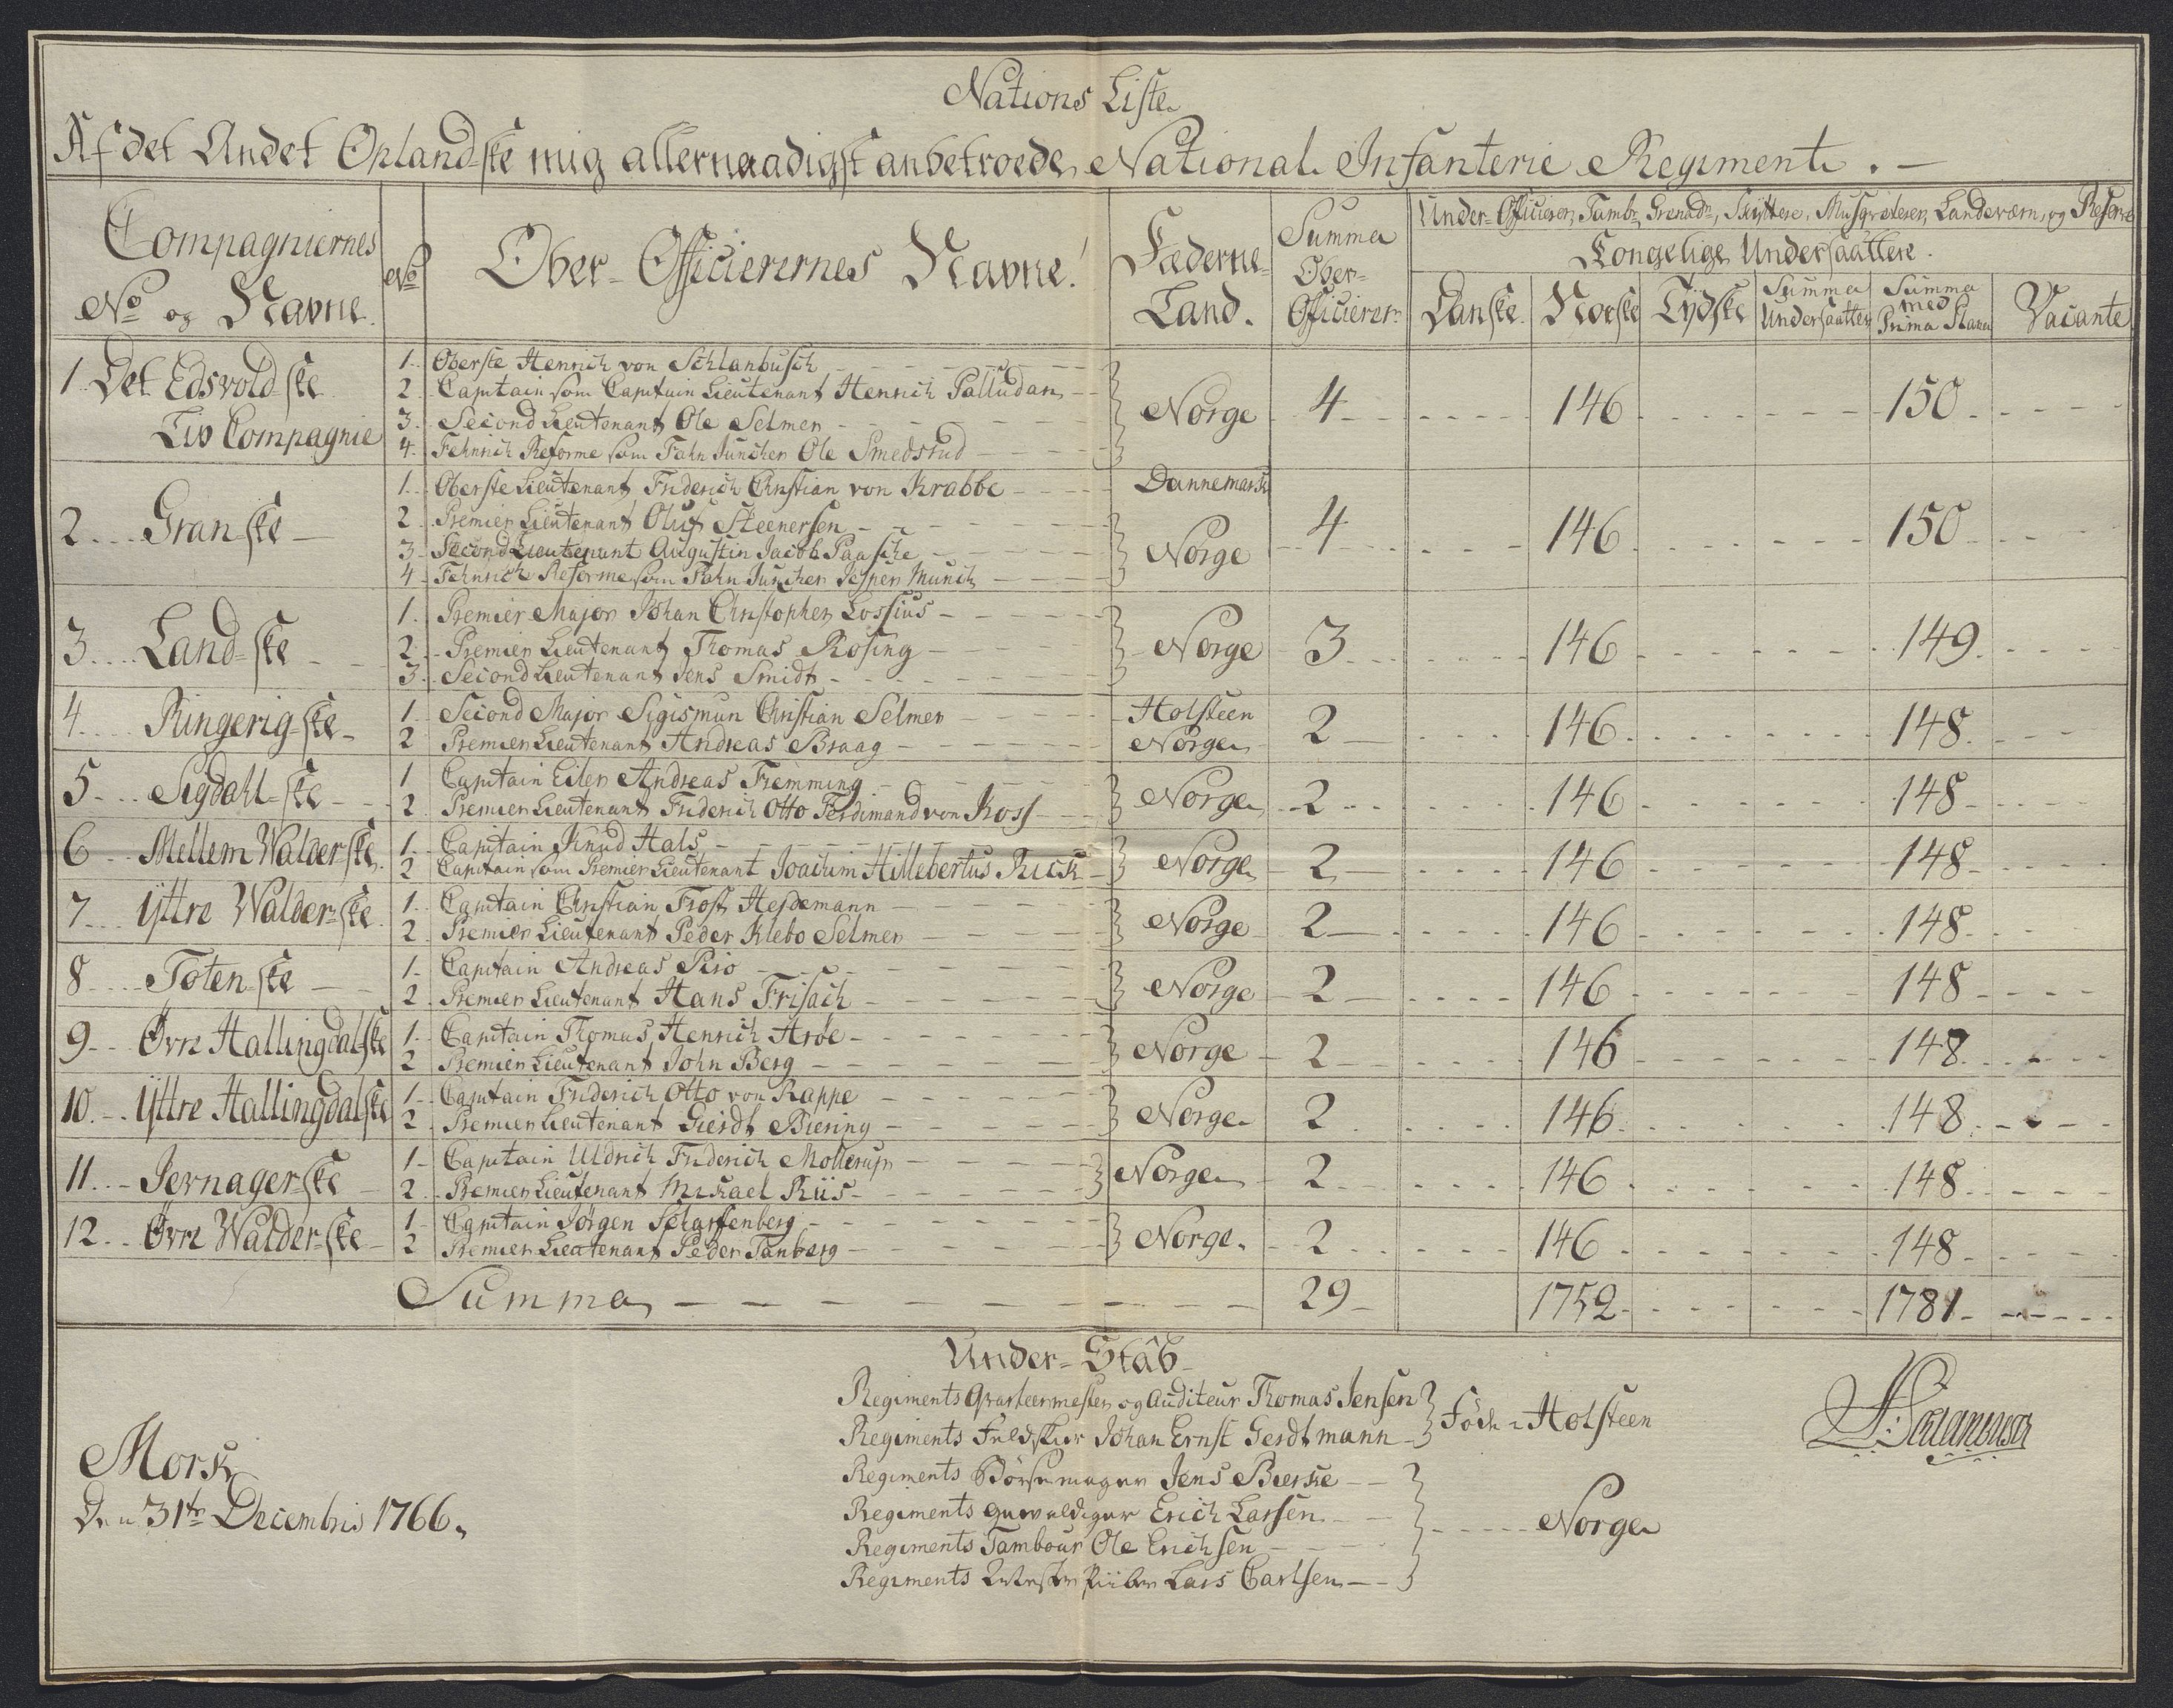 Nations Liste
Af det Andet Oplandske mig allernaadigst anbetroede National Infanterie Regiment. -
Compagniernes No og Navne. | No | Ober-Officierernes Navne. | Fæderne-Land. | Summa Ober-Officierer | Under-Officierer, Tambr, Grenadr, Skÿttere, Musqveterer, Landeværn, og Reserve
Kongelige Undersaattere.
Danske | Norske | Tÿdske | Summa Undersaatter | Summa med Prima Plana | Vacante
1. Det Edsvoldske Liv Compagnie | 1. Oberste Henrich von Schlanbusch | Norge | 4 | 146 | 150
2. Capitain som Capitain Lieutenant Henrich Palludan
3. Second Lieutenant Ole Selmer
4. Fehnrich Reforme som Fahn Juncher Ole Smedstud
2. Gran-ske | 1. Oberste Lieutenant Friderich Christian von Krabbe | Dannemark | 4 | 146 | 150
2. Premier Lieutenant Oluf Steenersen | Norge
3. Second Lieutenant Augustin Jacob Paasche
4. Fehnrich Reforme som Fahn Juncher Jesper Munch
3. Land-ske | 1. Premier Major Johan Christopher Lossius | Norge | 3 | 146 | 149
2. Premier Lieutenant Thomas Rosing
3. Second Lieutenant Jens Smidt
4. Ringerig-ske | 1. Second Major Sigismun Christian Selmer | Holsteen | 2 | 146 | 148
2 Premier Lieutenant Andreas Braag | Norge
5. Sigdahl-ske | 1 Capitain Eiler Andreas Fremming | Norge | 2 | 146 | 148
2. Premier Lieutenant Friderich Otto Ferdinand von Koss
6 Mellem Walder-ske | 1. Capitain Knud Hals | Norge | 2 | 146 | 148
2 Capitain som Premier Lieutenant Joachim Hillebertus Rick
7. Ÿttre Walder-ske | 1. Capitain Christian Frost Heydemann | Norge | 2 | 146 | 148
2. Premier Lieutenant Peder Klebo Selmer
8. Toten-ske | 1. Capitain Andreas Piro | Norge | 2 | 146 | 148
2. Premier Lieutenant Hans Frisach
9. Øvre Hallingdal-ske | 1. Capitain Thomas Henrich Arøe | Norge | 2 | 146 | 148
2 Premier Lieutenant John Berg
10. Ÿttre Hallingdalske | 1. Capitain Friderich Otto von Rappe | Norge | 2 | 146 | 148
2. Premier Lieutenant Gierdt Biering
11. Jevnager-ske | 1. Capitain Uldrich Friderich Mollerup | Norge | 2 | 146 | 148
2. Premier Lieutenant Mikael Riis
12. Øvre Walder-ske | 1. Capitain Jørgen Scharffenberg | Norge | 2 | 146 | 148
2 Premier Lieutenant Peder Tanberg
Summa | 29 | 1752 | 1781
Under-Stâb
Regiments Qvarteermester og Auditeur Thomas Jensen
Regiments Feldskier Johan Ernst Gerdtmann | Föde i Holsteen
Regiments Börsemager Jens Bierke
Regiments Gevaldiger Erich Larsen | Norge
Regiments Tambour Ole Erichsen
Regiments Lars Carlsen
H: Schlanbusch
Mork
Den 31te Decembris 1766.